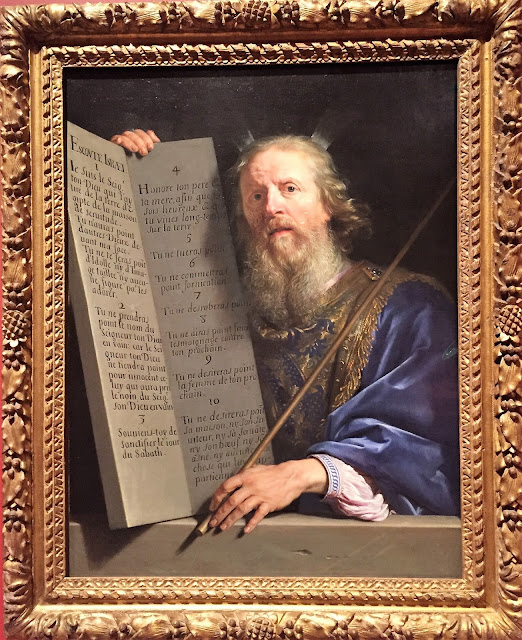 ESCOVTE ISRAEL
1
Ie suis le Seigr
ton Dieu qui t'ay
tiré de la terre d'E
gypte de la maison
de servitude.
Tu n'auras point
d'autres Dieux de
vant ma face.
Tu ne te feras point
d'Idolle ny d'Ima
ge taillée ny aucu
ne figure por les
adorer.
2
Tu ne prendras
point le nom du
Seigneur ton Dieu
en vain: car le Sei
gneur ton Dieu
ne tiendra point
pour innocent ce
luy qui aura pris
le nom du Seigr
son Dieu en vain
3
Souviens-toy de
sanctifier le iour
du Sabath.
4
Honore ton pere et
ta mere, afin que tu
sois heureux &
tu vives long-
sur la terre.
5
Tu ne tueras point
6
Tu ne commettras
point fornication.
7
Tu ne desroberas point
8
Tu ne diras point faux
tesmoignage contre
ton prochain.
9
Tu ne desireras point
la femme de ton pro
chain.
10
Tu ne desireras point
sa maison, ny son ser
uiteur, ny sa servante
ny son bœuf, ny son
asne, ny aucune
chose qui luy